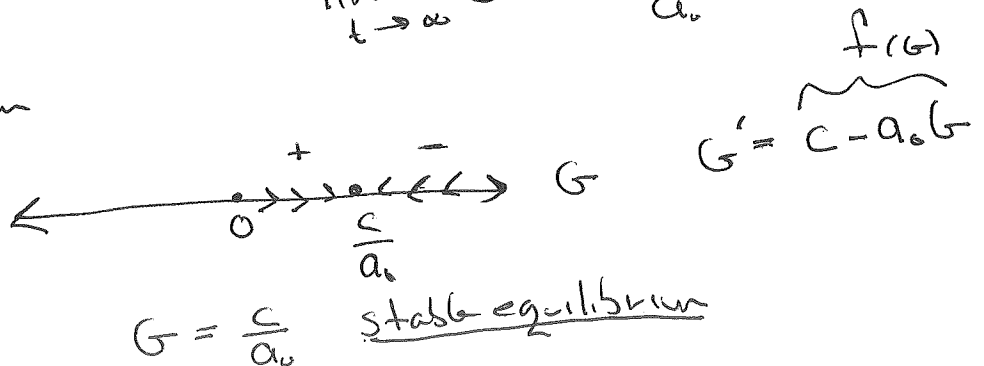 t → ∞ a₀
f(G)
+ − G' = c - a₀G
G
0 c/a₀
G = c/a₀ stable equilibrium